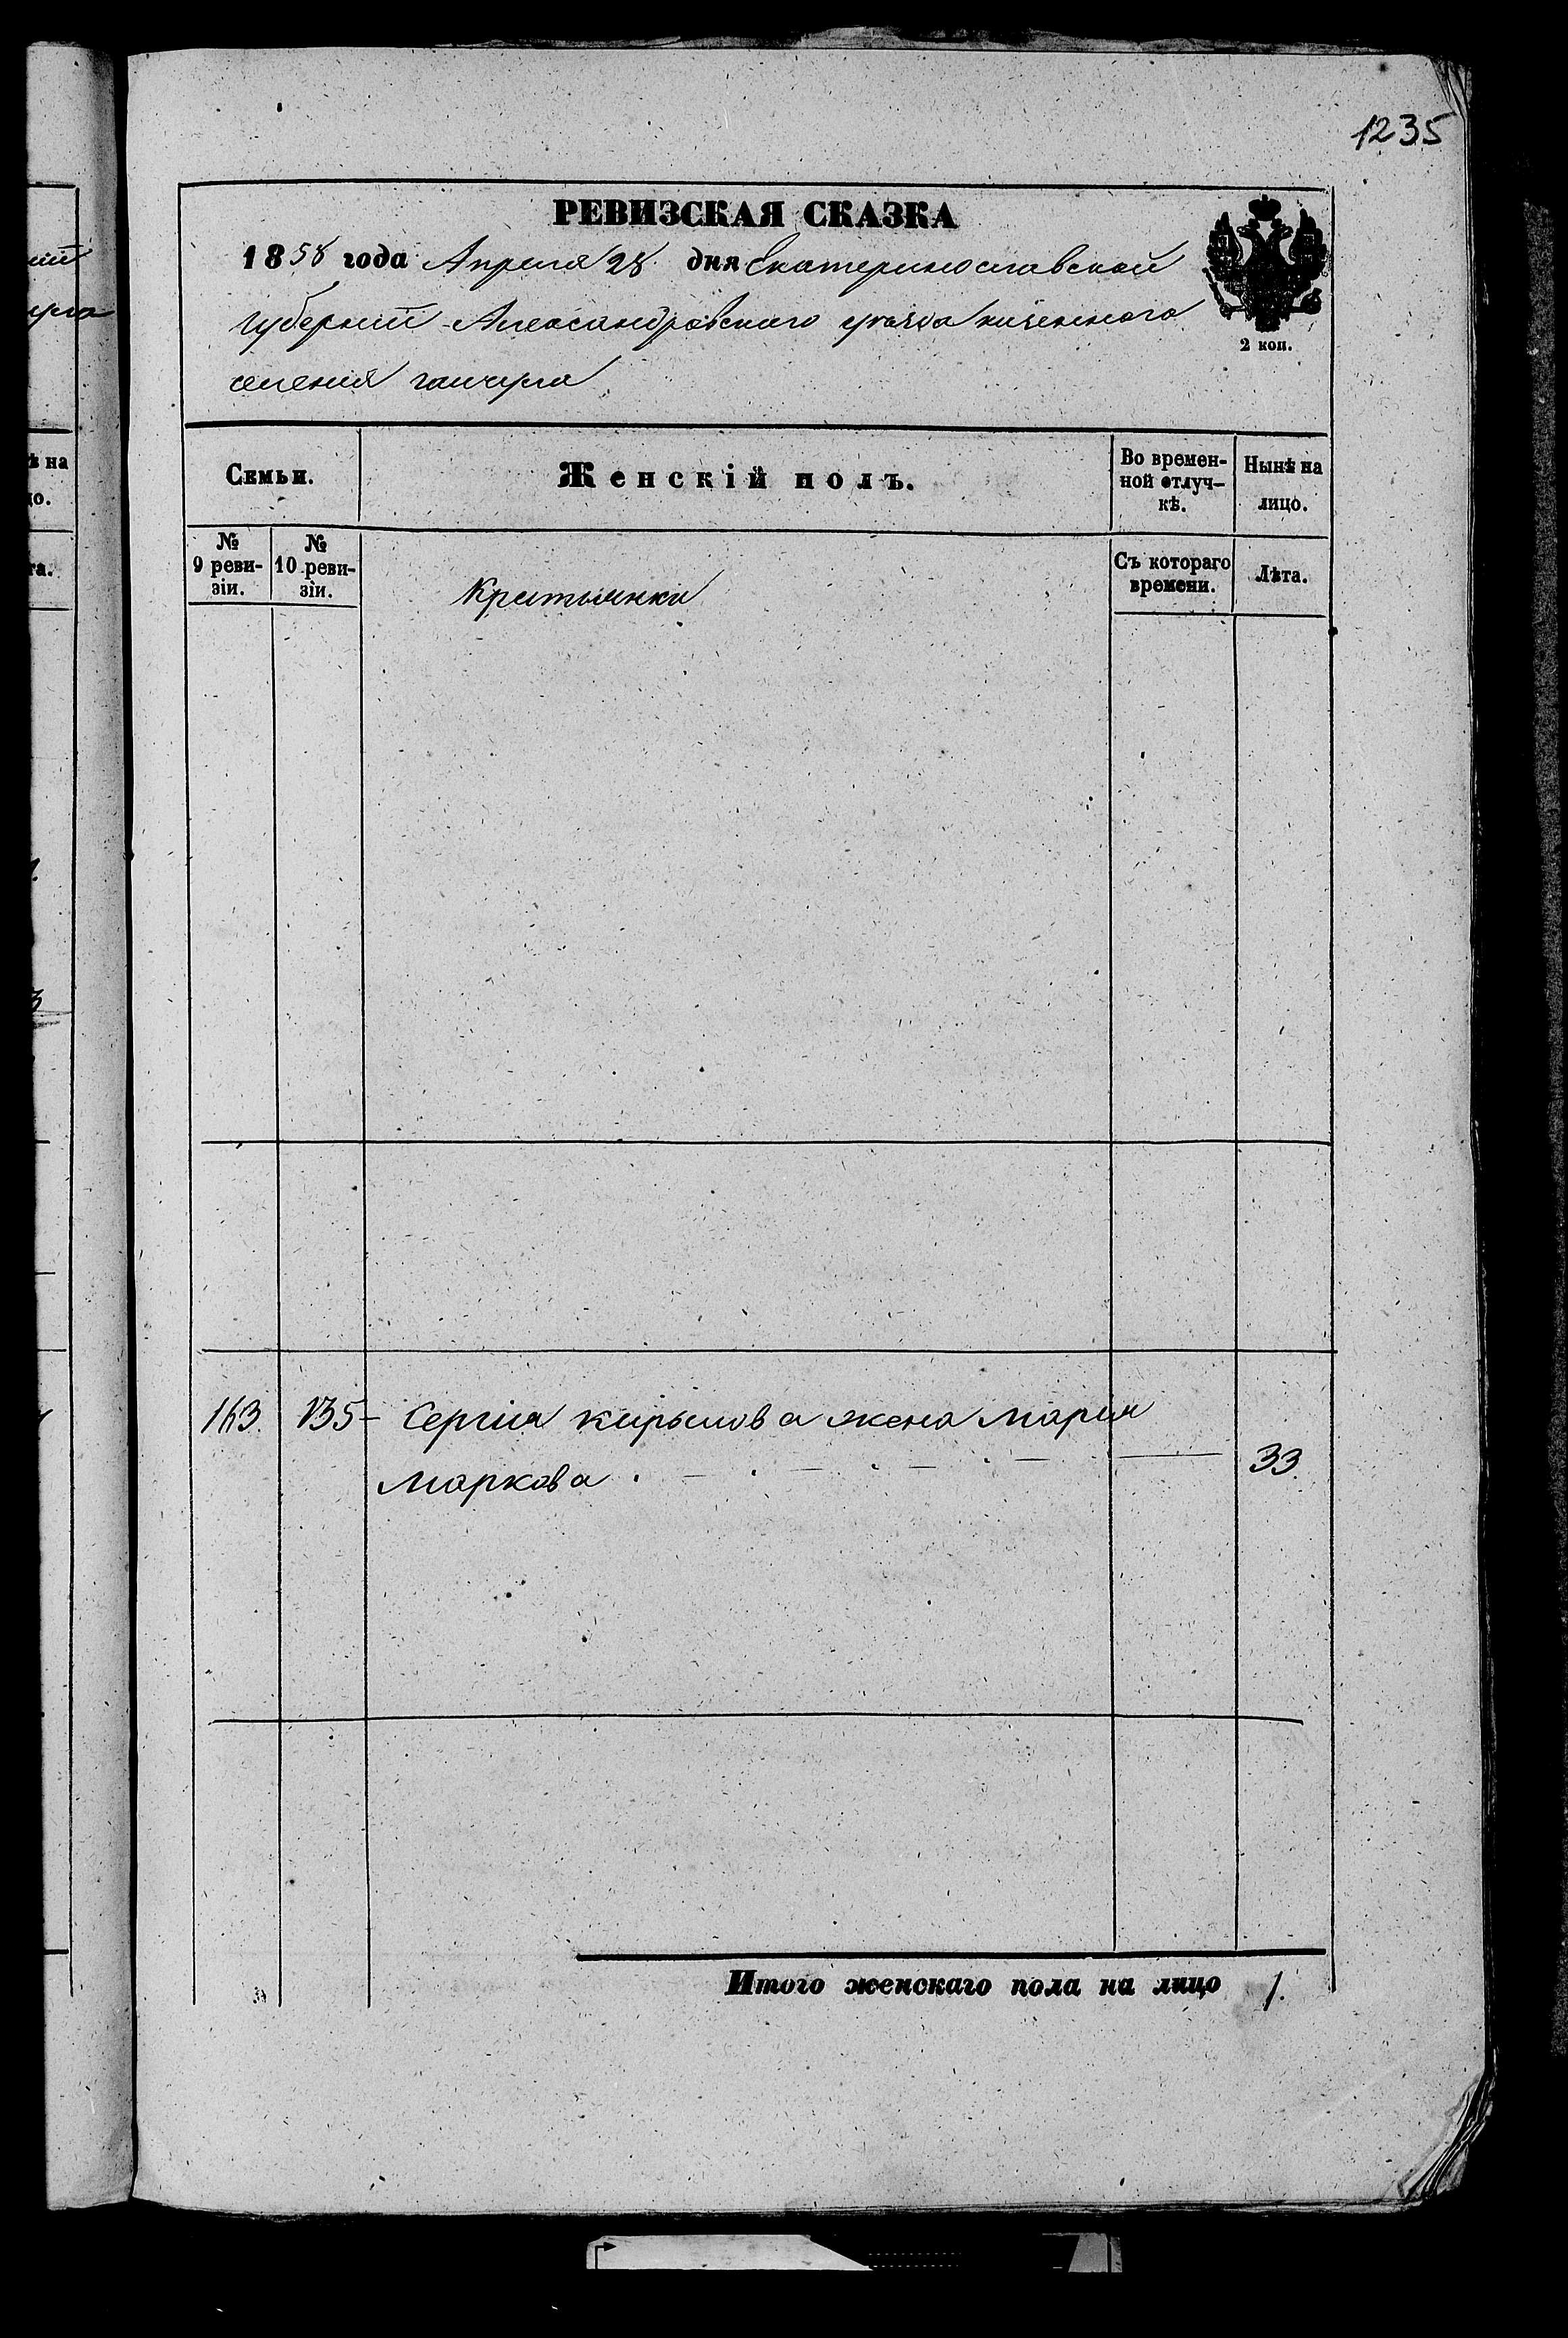 1235
РЕВИЗСКАЯ СКАЗКА
1858 года Апреля 28 дня Екатеринославской
губернии Александровского уезда казенного
селения гайчула
2 коп.
Семьи.
Женскій полъ.
Во времен-
ной отлуч-
кѣ.
Нынѣ на
лицо.
№
9 реви-
зіи.
№
10 реви-
зіи.
Съ котораго
времени.
Лѣта.
Крестьянки
163. 135- Сергия кирылова жена Марья
Маркова . - . - . - . - 33.
Итого женскаго пола на лицо 1.